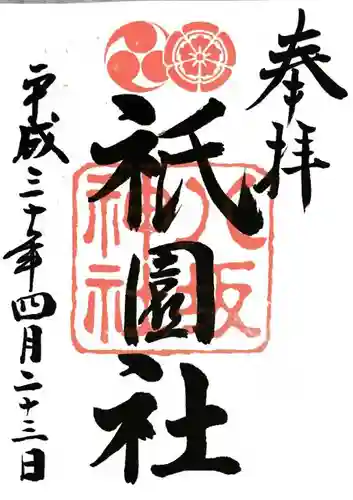 奉拝
八坂
神社
祇園社
平成三十年四月二十三日